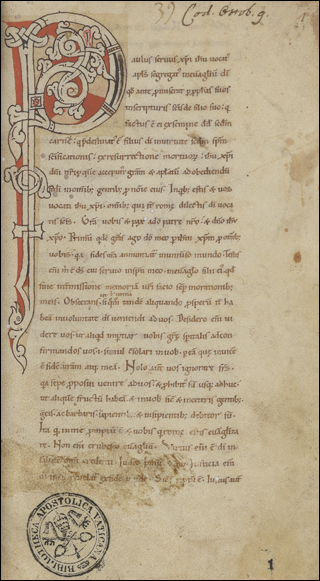 39. Cod. Ottob. 9.
P
aulus seruus xp̄i ih̄u uocat᾽
apl̄s segregat᾽ in euuāgliū dī
qđ ante p̄miserat p p̄phās suos
in scripturis scīs de filio suo. q
factus ē ei ex semine dđ sed̄m
carnē. q p̄destinat᾽ ē filius dī in uirtute sed̄m sp̄m
scīficationis. ex resurrectione mortuoꝝ ih̄u xp̄i
dn̄i nr̄i p quē accepim᾽ grām & apl̄atū ad obediendū
fidei in omnib; gentib; p noīe ei᾽. In qb; estis & uos
uocati ih̄u xp̄i. omīb; qui st̄ rome dilectis dī uoca
tis scīs. Grā uobis & pax a dō patre nr̄o. & dn̄o ih̄u
xp̄o. qdē grās ago dō meo p ih̄m xp̄m p omīb;
uobis. qa fides ur̄a annuntiat᾽ in uniuerso mundo. Testis
enī m̄ ē dī cui seruio in sp̄u meo in euāglio filii ei᾽ qđ
sine intermissione memoriā ur̄i facio sēp in orationib;
meis. Obsecrans si quomodo tandē aliquando psperū iter ha
beā in uoluntate dī ueniendi ad uos. Desidero enī ui
dere uos. ut aliqđ inptiar uobis grē spiritalis ad con
firmandos uos. i. simul csolari in uob. p eā que inuicē
ē fidē ur̄am atq; meā. Nolo aut̄ uos ignorare fr̄s.
qa sepe pposui uenire ad uos & phibit᾽ sū usq; adhuc.
ut aliquē fructū habeā & in uob sic & in ceteris gentib;
grecis. ac barbaris. sapientib; & insipientib; debitor sū.
Ita q in me pmptū ē & uobis q rome estis euāgliza
re. Non enī erubesco euāgliū. Uirtus enī ē dī in
salutē omī credenti. Iudeo primū Iusticia enī
dī in eo reuelat᾽ ex fide in fidē. Sic scriptū ē. Iust᾽ aut̄
BIBLIOTHECA APOSTOLICA VATICANA
1